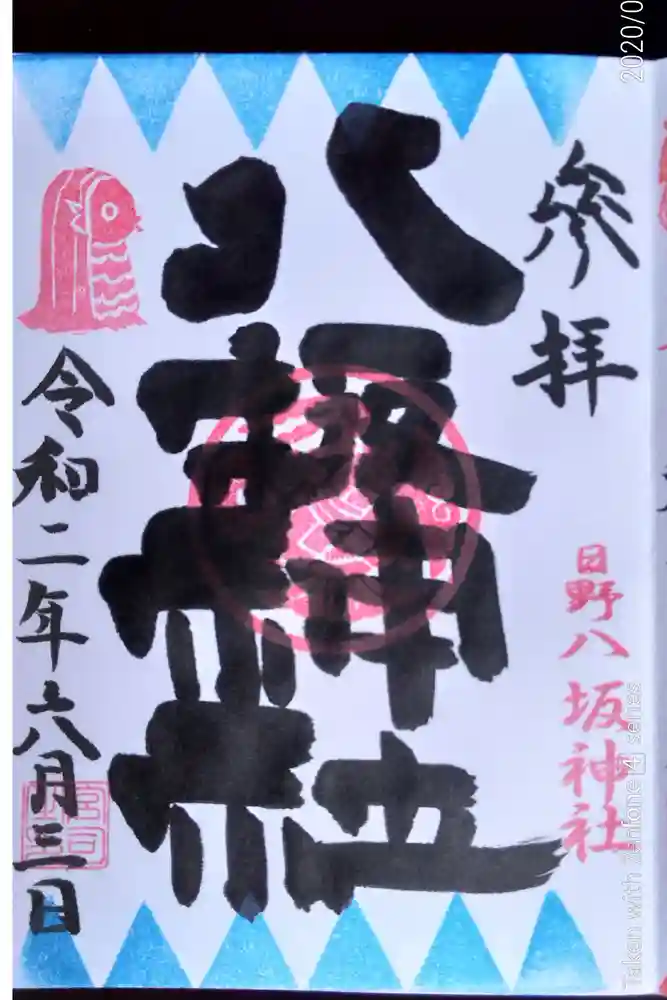 2020/0
Taken with zenfone 4 series
参拝
日野八坂神社
八坂神社
令和二年六月三日